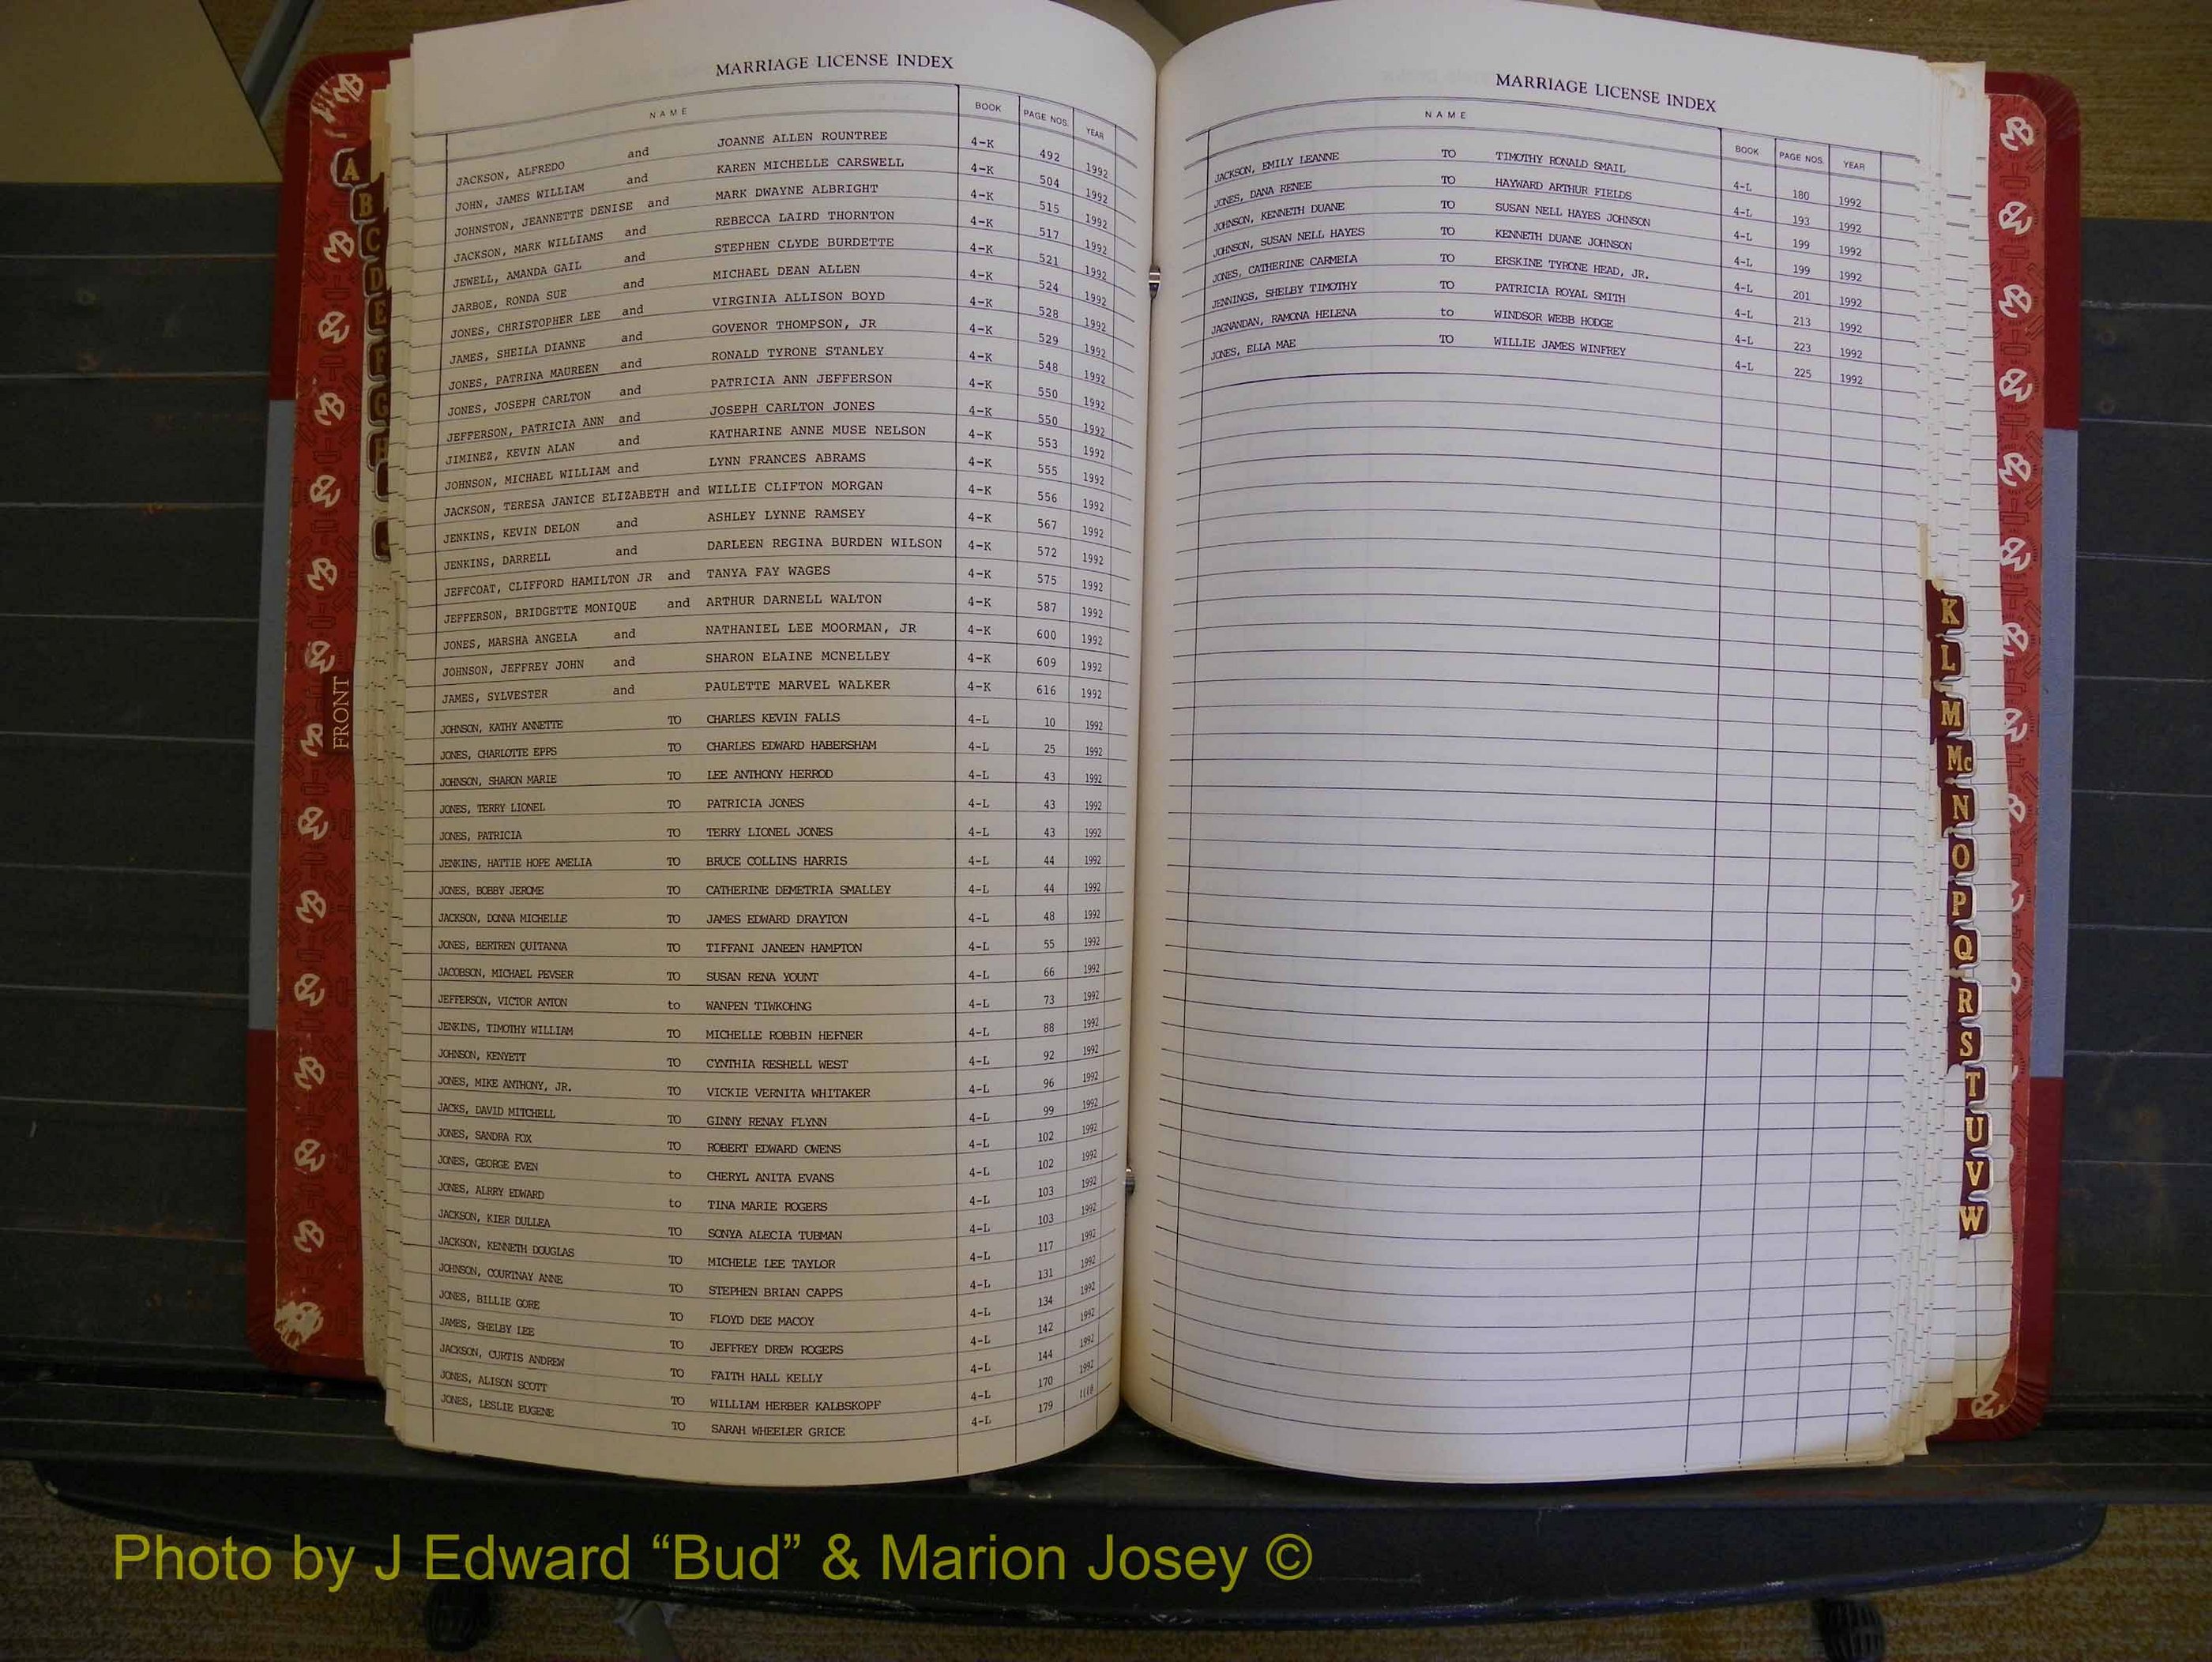 MARRIAGE LICENSE INDEX
NAME BOOK PAGE NOS. YEAR
JACKSON, ALFREDO and JOANNE ALLEN ROUNTREE 4-K 492 1992
JOHN, JAMES WILLIAM and KAREN MICHELLE CARSWELL 4-K 504 1992
JOHNSTON, JEANNETTE DENISE and MARK DWAYNE ALBRIGHT 4-K 515 1992
JACKSON, MARK WILLIAMS and REBECCA LAIRD THORNTON 4-K 517 1992
JEWELL, AMANDA GAIL and STEPHEN CLYDE BURDETTE 4-K 521 1992
JARBOE, RONDA SUE and MICHAEL DEAN ALLEN 4-K 524 1992
JONES, CHRISTOPHER LEE and VIRGINIA ALLISON BOYD 4-K 528 1992
JAMES, SHEILA DIANNE and GOVENOR THOMPSON, JR 4-K 529 1992
JONES, PATRINA MAUREEN and RONALD TYRONE STANLEY 4-K 548 1992
JONES, JOSEPH CARLTON and PATRICIA ANN JEFFERSON 4-K 550 1992
JEFFERSON, PATRICIA ANN and JOSEPH CARLTON JONES 4-K 550 1992
JIMINEZ, KEVIN ALAN and KATHARINE ANNE MUSE NELSON 4-K 553 1992
JOHNSON, MICHAEL WILLIAM and LYNN FRANCES ABRAMS 4-K 555 1992
JACKSON, TERESA JANICE ELIZABETH and WILLIE CLIFTON MORGAN 4-K 556 1992
JENKINS, KEVIN DELON and ASHLEY LYNNE RAMSEY 4-K 567 1992
JENKINS, DARRELL and DARLEEN REGINA BURDEN WILSON 4-K 572 1992
JEFFCOAT, CLIFFORD HAMILTON JR and TANYA FAY WAGES 4-K 575 1992
JEFFERSON, BRIDGETTE MONIQUE and ARTHUR DARNELL WALTON 4-K 587 1992
JONES, MARSHA ANGELA and NATHANIEL LEE MOORMAN, JR 4-K 600 1992
JOHNSON, JEFFREY JOHN and SHARON ELAINE MCNELLEY 4-K 609 1992
JAMES, SYLVESTER and PAULETTE MARVEL WALKER 4-K 616 1992
JOHNSON, KATHY ANNETTE TO CHARLES KEVIN FALLS 4-L 10 1992
JONES, CHARLOTTE EPPS TO CHARLES EDWARD HABERSHAM 4-L 25 1992
JOHNSON, SHARON MARIE TO LEE ANTHONY HERROD 4-L 43 1992
JONES, TERRY LIONEL TO PATRICIA JONES 4-L 43 1992
JONES, PATRICIA TO TERRY LIONEL JONES 4-L 43 1992
JENKINS, HATTIE HOPE AMELIA TO BRUCE COLLINS HARRIS 4-L 44 1992
JONES, BOBBY JEROME TO CATHERINE DEMETRIA SMALLEY 4-L 44 1992
JACKSON, DONNA MICHELLE TO JAMES EDWARD DRAYTON 4-L 48 1992
JONES, BERTREN QUITANNA TO TIFFANI JANEEN HAMPTON 4-L 55 1992
JACOBSON, MICHAEL PEVSER TO SUSAN RENA YOUNT 4-L 66 1992
JEFFERSON, VICTOR ANTON to WANPEN TIWKOHNG 4-L 73 1992
JENKINS, TIMOTHY WILLIAM TO MICHELLE ROBBIN HEFNER 4-L 88 1992
JOHNSON, KENYETT TO CYNTHIA RESHELL WEST 4-L 92 1992
JONES, MIKE ANTHONY, JR. TO VICKIE VERNITA WHITAKER 4-L 96 1992
JACKS, DAVID MITCHELL TO GINNY RENAY FLYNN 4-L 99 1992
JONES, SANDRA FOX TO ROBERT EDWARD OWENS 4-L 102 1992
JONES, GEORGE EVEN to CHERYL ANITA EVANS 4-L 102 1992
JONES, ALRRY EDWARD to TINA MARIE ROGERS 4-L 103 1992
JACKSON, KIER DULLEA TO SONYA ALECIA TUBMAN 4-L 103 1992
JACKSON, KENNETH DOUGLAS TO MICHELE LEE TAYLOR 4-L 117 1992
JOHNSON, COURTNAY ANNE TO STEPHEN BRIAN CAPPS 4-L 131 1992
JONES, BILLIE GORE TO FLOYD DEE MACOY 4-L 134 1992
JAMES, SHELBY LEE TO JEFFREY DREW ROGERS 4-L 142 1992
JACKSON, CURTIS ANDREW TO FAITH HALL KELLY 4-L 144 1992
JONES, ALISON SCOTT TO WILLIAM HERBER KALBSKOPF 4-L 170 1992
JONES, LESLIE EUGENE TO SARAH WHEELER GRICE 4-L 179
MARRIAGE LICENSE INDEX
NAME BOOK PAGE NOS. YEAR
JACKSON, EMILY LEANNE TO TIMOTHY RONALD SMAIL 4-L 180 1992
JONES, DANA RENEE TO HAYWARD ARTHUR FIELDS 4-L 193 1992
JOHNSON, KENNETH DUANE TO SUSAN NELL HAYES JOHNSON 4-L 199 1992
JOHNSON, SUSAN NELL HAYES TO KENNETH DUANE JOHNSON 4-L 199 1992
JONES, CATHERINE CARMELA TO ERSKINE TYRONE HEAD, JR. 4-L 201 1992
JENNINGS, SHELBY TIMOTHY TO PATRICIA ROYAL SMITH 4-L 213 1992
JAGNANDAN, RAMONA HELENA to WINDSOR WEBB HODGE 4-L 223 1992
JONES, ELLA MAE TO WILLIE JAMES WINFREY 4-L 225 1992
A
B
C
D
E
F
G
H
FRONT
K
L
M
Mc
N
O
P
Q
R
S
T
U
V
W
Photo by J Edward “Bud” & Marion Josey ©